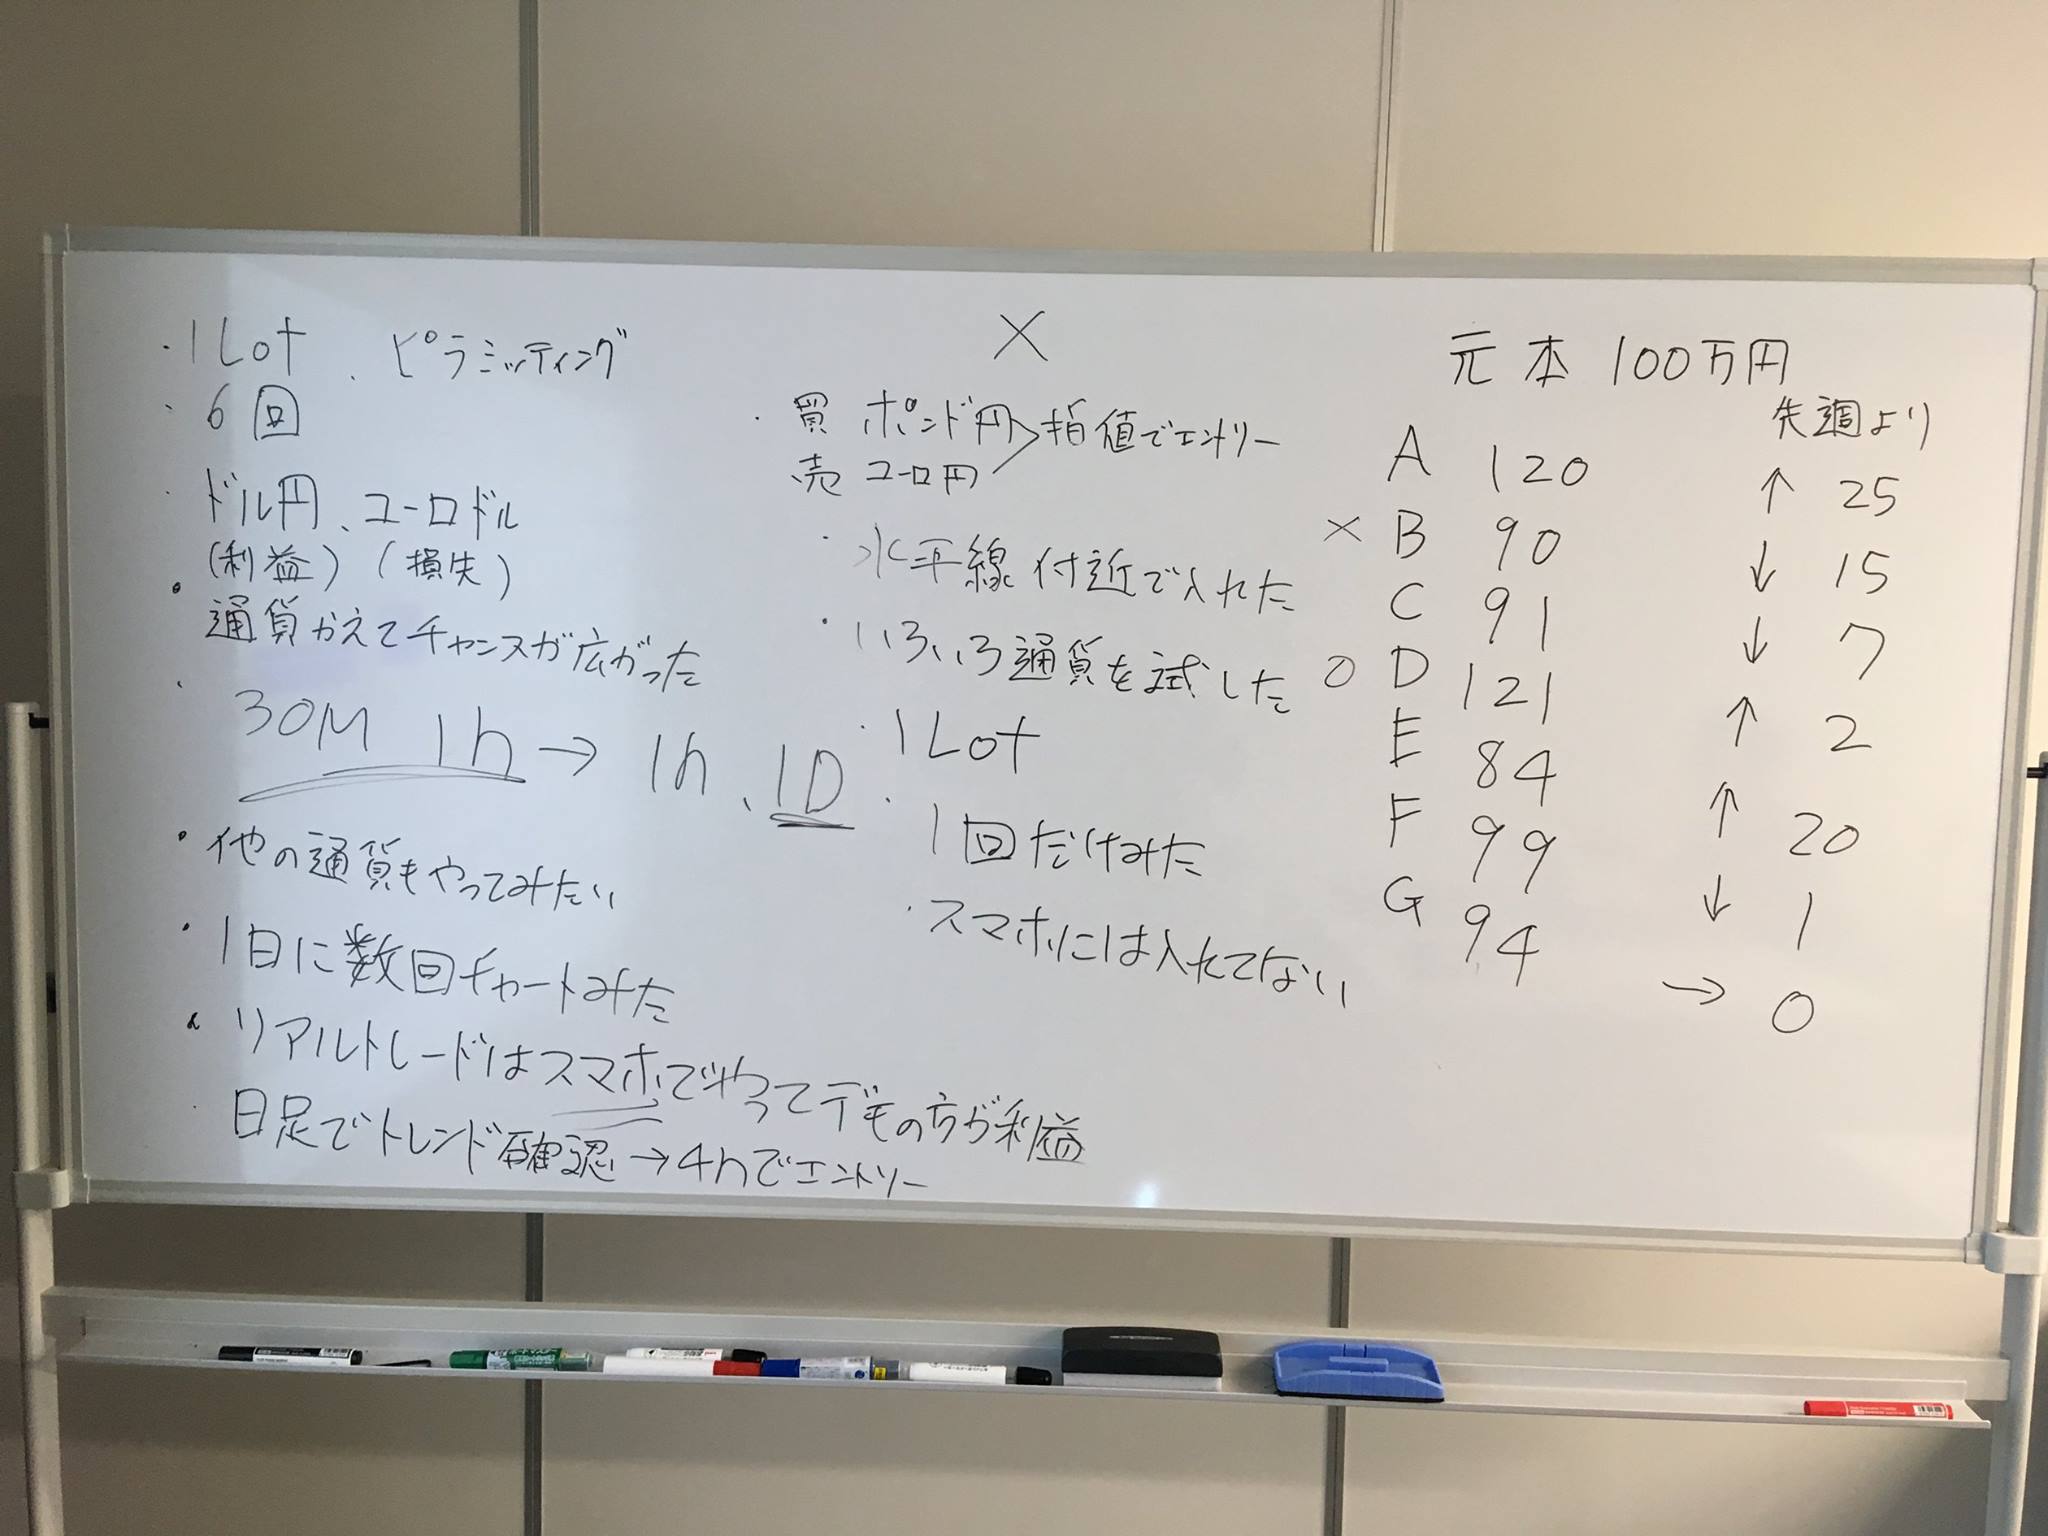 ・1Lot 、ピラミッティング
・6回
・ドル円、ユーロドル
(利益)(損失)
・通貨かえてチャンスが広がった
・30M 1h→1h、1D
・他の通貨もやってみたい
・1日に数回チャートみた
・リアルトレードはスマホでやってデモの方が利益
・日足でトレンド確認→4hでエントリー
×
・買 ポンド円 指値でエントリー
売 ユーロ円
・水平線付近で入れた
・いろいろ通貨を試した
・1Lot
・1回だけみた
・スマホには入れてない
元本 100万円
先週より
A 120 ↑ 25
× B 90 ↓ 15
C 91 ↓ 7
○ D 121 ↑ 2
E 84 ↑ 20
F 99 ↓ 1
G 94 → 0